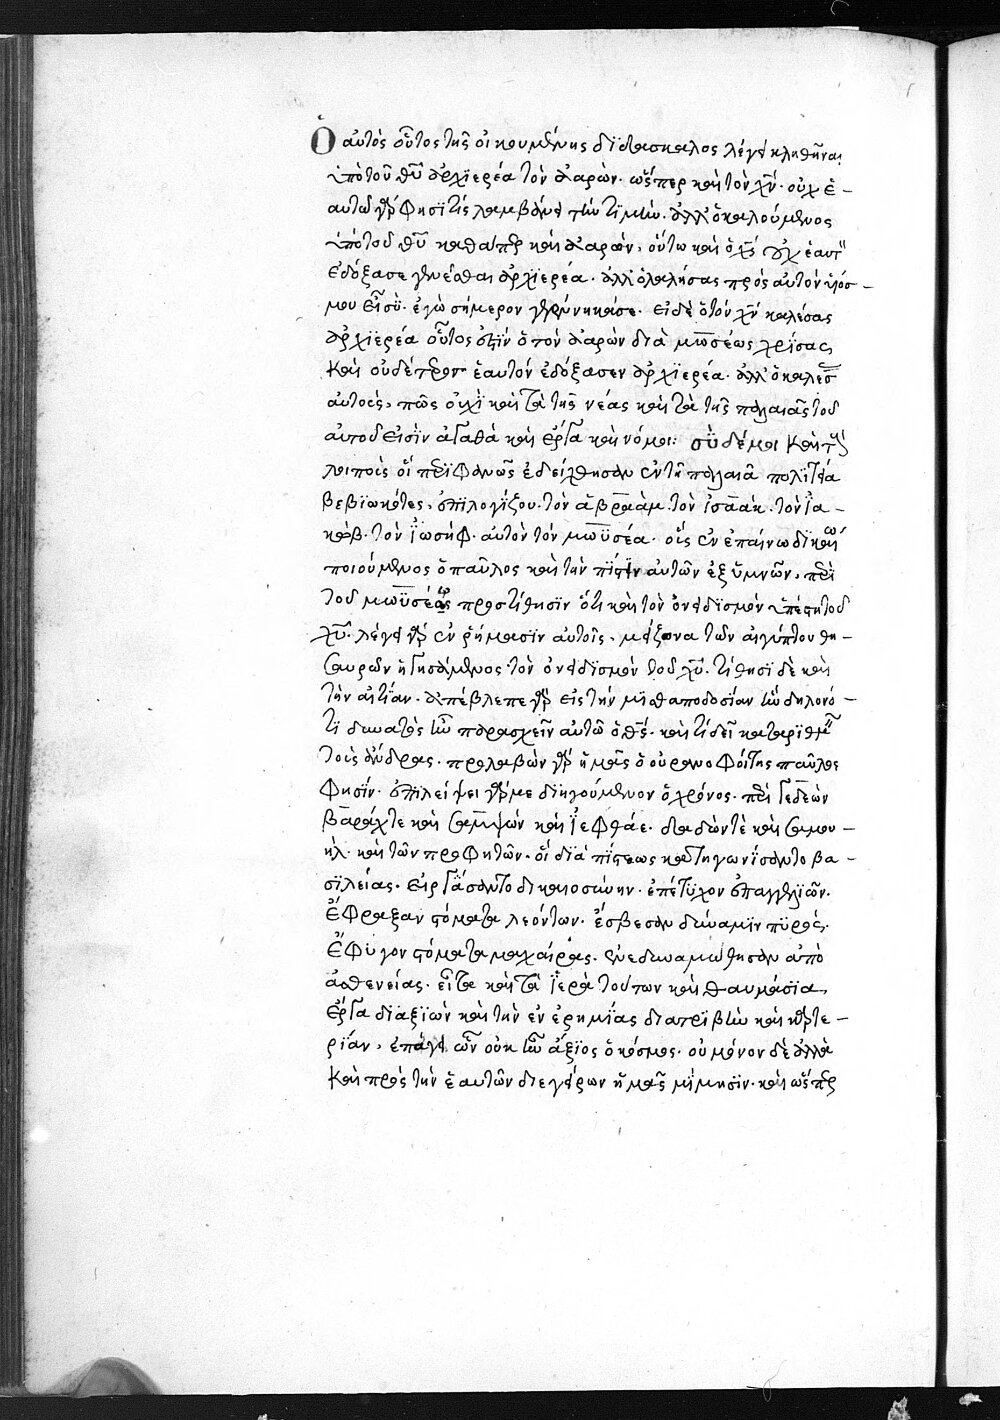 Ὁ αὐτὸς οὗτος τῆς οἰκουμένης διδάσκαλος λέγει κληθῆναι
ὑπὸ τοῦ θυ ἀρχιερέα τὸν ἀαρὼν· ὥσπερ καὶ τὸν χν· οὐχ ἑ-
αυτῶ γάρ φησί τις λαμβάνει τὴν τιμὴν· ἀλλ' ὁ καλούμενος
ὑπὸ τοῦ θυ καθάπερ καὶ ἀαρὼν, οὕτω καὶ ὁ χς οὐχ ἑαυτὸν
ἐδόξασε γενέσθαι ἀρχιερέα· ἀλλ' ὁ λαλήσας πρὸς αὐτὸν υἱός -
μου εἶ σὺ· ἐγὼ σήμερον γεγέννηκά σε· εἰ δὲ ὁ τὸν χν καλέσας
ἀρχιερέα οὗτος ἐστὶν ὁ τὸν ἀαρὼν διὰ μωσέως χρίσας,
καὶ οὐδέτερον ἑαυτὸν ἐδόξασεν ἀρχιερέα· ἀλλ' ὁ καλέσας
αὐτοὺς, πῶς οὐχὶ καὶ τὰ τῆς νέας καὶ τὰ τῆς παλαιᾶς τοῦ
αὐτοῦ εἰσὶν ἀγαθὰ καὶ ἔργα καὶ νόμοι: σὺ δέ μοι καὶ τοὺς
λοιποὺς οἳ περιφανῶς ἐδείχθησαν ἐν τῆ παλαιᾶ πολιτεία
βεβιωκότες, ἐπιλογίζου· τὸν ἀβραὰμ· τὸν ἰσαὰκ· τὸν ἰα -
κὼβ· τὸν ἰωσὴφ· αὐτὸν τὸν μωϋσέα· οἷς ἐν ἐπαίνω δικαίω
ποιούμενος ὁ παῦλος καὶ τὴν πίστιν αὐτῶν ἐξυμνῶν, περὶ
τοῦ μωϋσέως προστίθησιν ὅτι καὶ τὸν ὀνειδισμὸν ὑπέστη τοῦ
χυ· λέγει γὰρ ἐν ῥήμασιν αὐτοῖς, μείζονα τῶν αἰγύπτου θη -
σαυρῶν ἡγησάμενος τὸν ὀνειδισμὸν τοῦ χυ· τίθησι δὲ καὶ
τὴν αἰτίαν· ἀπέβλεπε γὰρ εἰς τὴν μισθαποδοσίαν ἣν δηλονό -
τι δυνατὸς ἦν παρασχεῖν αὐτῶ ὁ θς· καὶ τί δεῖ καταριθμεῖν
τοὺς ἄνδρας· προλαβὼν γὰρ ἡμᾶς ὁ οὐρανοφοίτης παῦλος
φησίν· ἐπιλείψει γάρ με διηγούμενον ὁ χρόνος· περὶ γεδεὼν
βαράκ τε καὶ σαμψὼν καὶ ἰεφθάε· δαδών τὲ καὶ σαμου -
ὴλ· καὶ τῶν προφητῶν· οἳ διὰ πίστεως κατηγωνίσαντο βα -
σιλείας· εἰργάσαντο δικαιοσύνην· ἐπέτυχον ἐπαγγελιῶν·
ἔφραξαν στόματα λεόντων· ἔσβεσαν δύναμιν πυρὸς·
ἔφυγον στόματα μαχαίρας· ἐνεδυναμώθησαν ἀπὸ
ἀσθενείας· εἶτα καὶ τὰ ἱερὰ τούτων καὶ θαυμάσια,
ἔργα διαξιὼν καὶ τὴν ἐν ἐρημίας διατριβὴν καὶ καρτε -
ρίαν, ἐπάγει ὧν οὐκ ἦν ἄξιος ὁ κόσμος· οὐ μόνον δὲ ἀλλὰ
καὶ πρὸς τὴν ἑαυτῶν διεγείρων ἡμᾶς μίμησιν· καὶ ὥσπερ